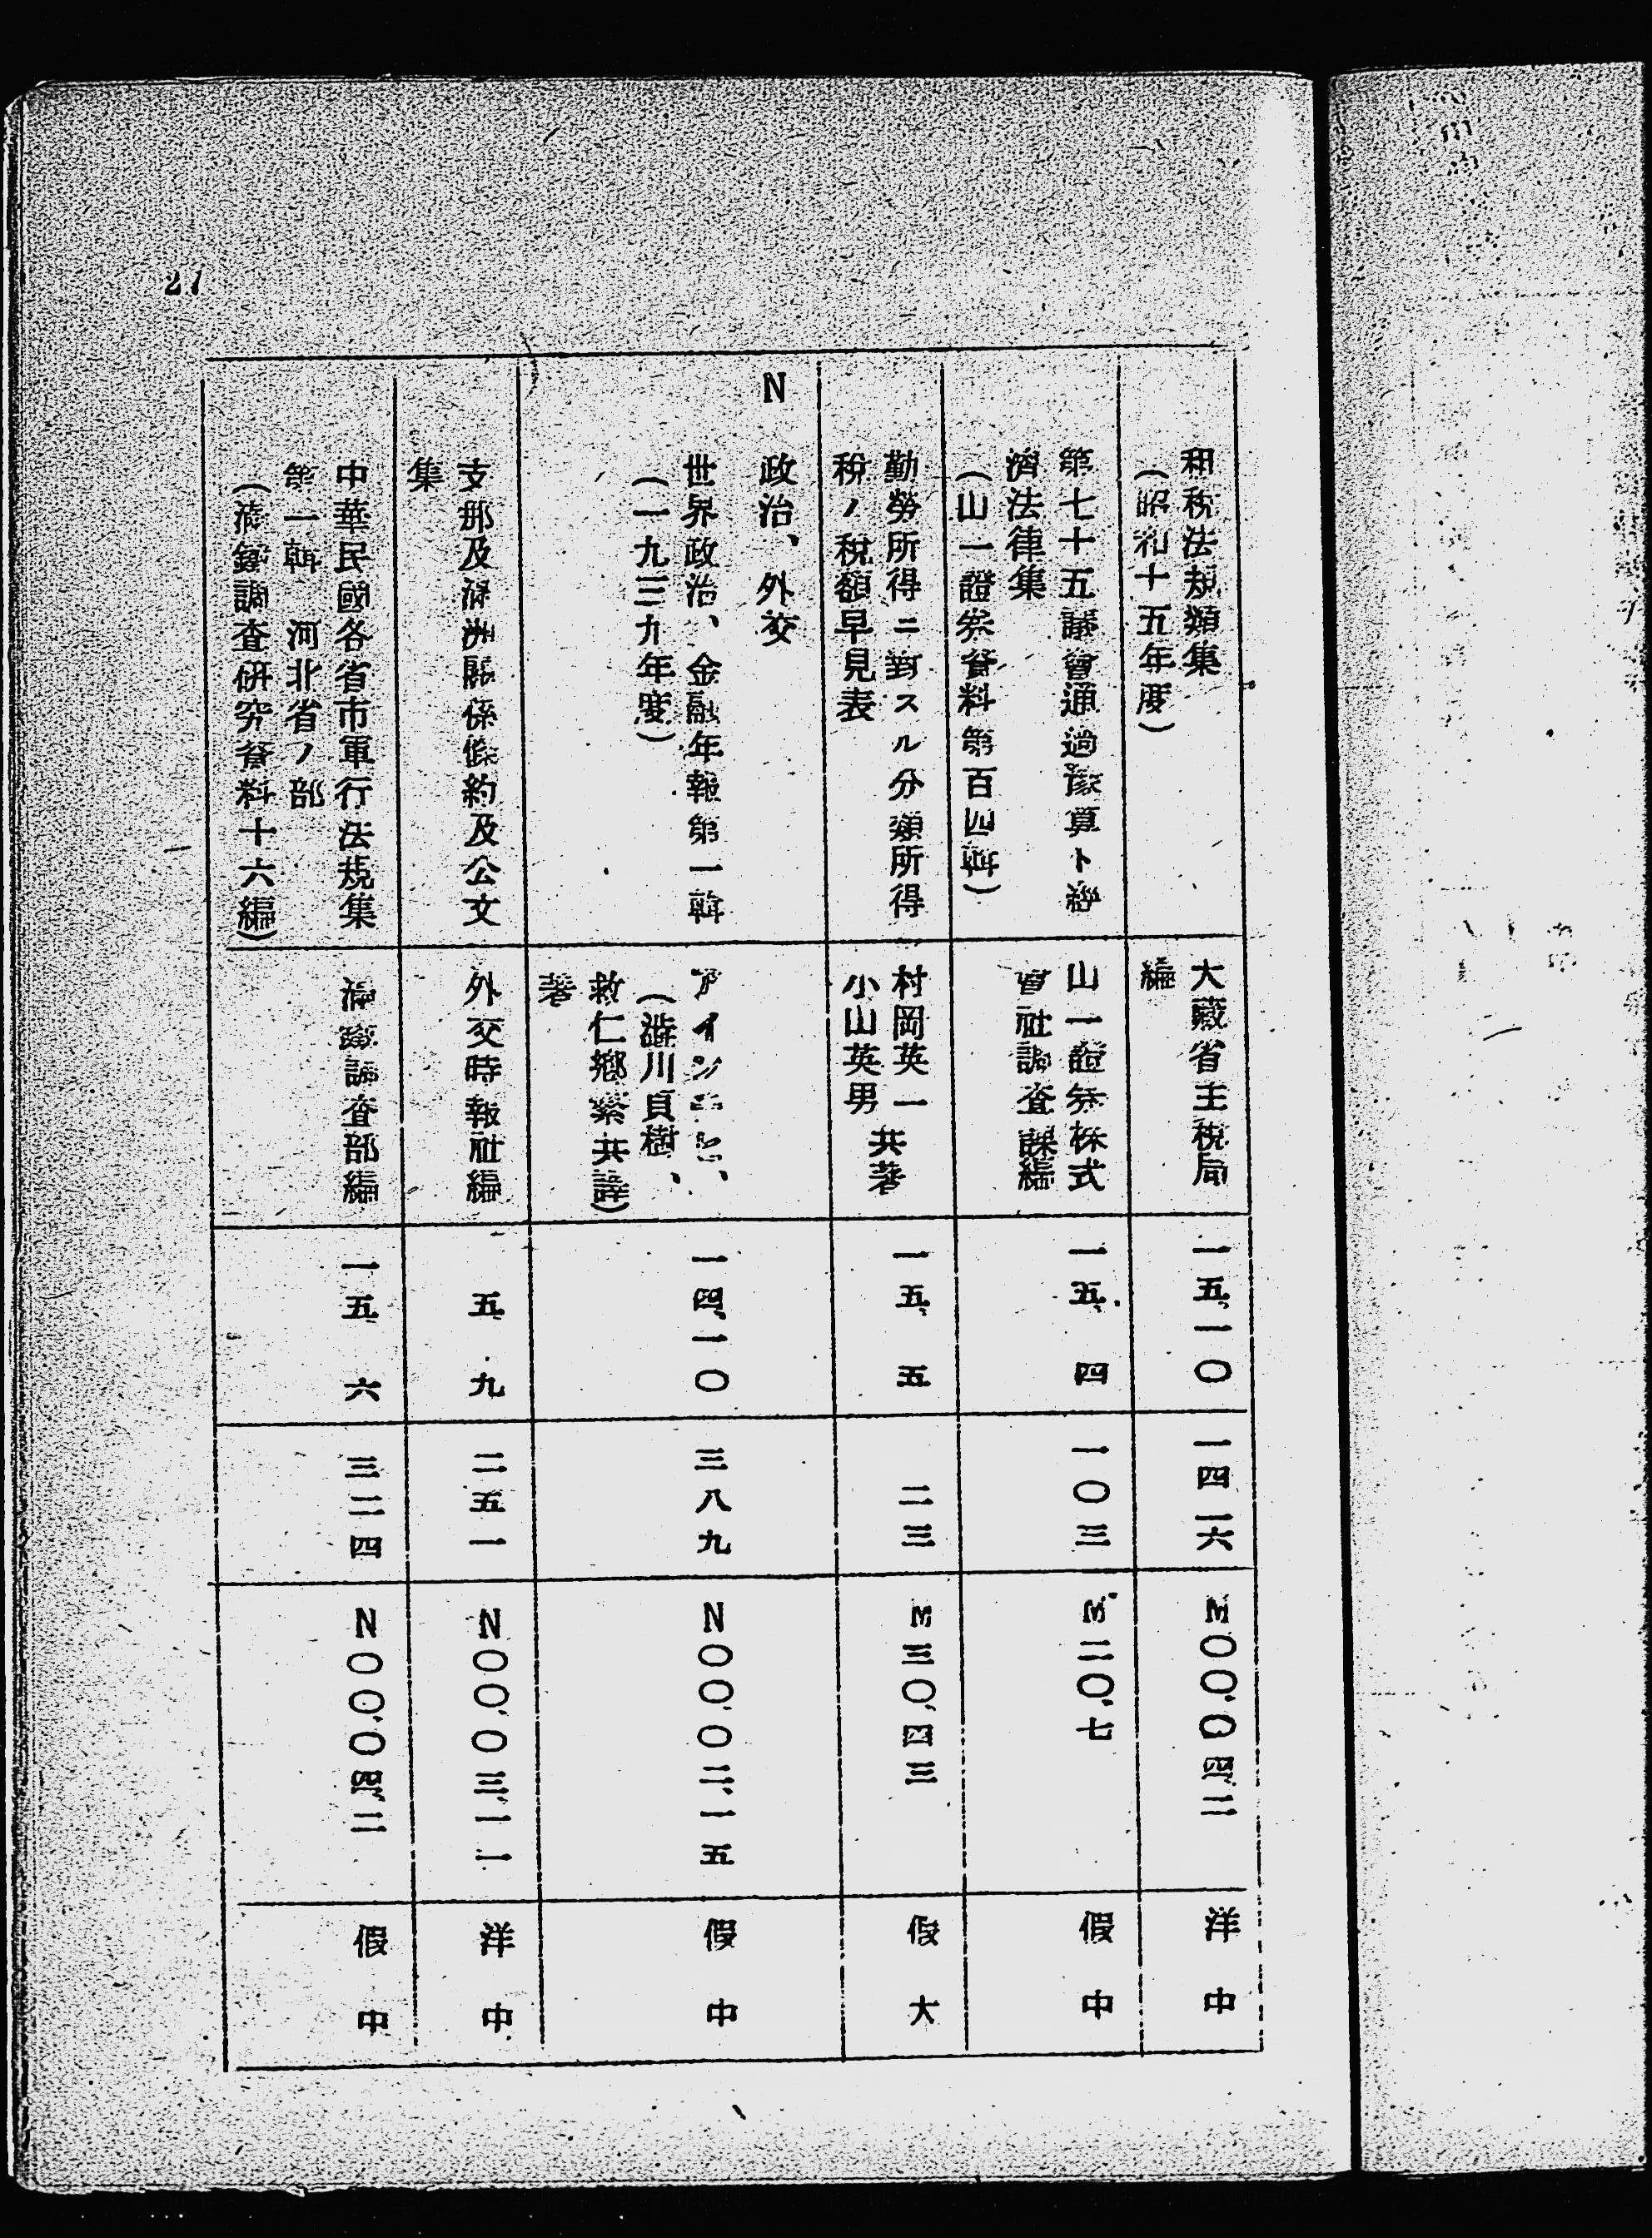 租稅法規類集
（昭和十五年度）
大藏省主稅局
編
一五、一〇
一四二六
M〇〇、〇四、二
洋中
第七十五議會通過豫算ト經
濟法律集
（山一證券資料第百四輯）
山一證券株式
會社調査課編
一五、四
一〇三
M二〇、七
假中
勤勞所得ニ對スル分類所得
稅ノ稅額早見表
村岡英一
小山英男
共著
一五、五
二三
M三〇、四三
假大
N 政治、外交
世界政治、金融年報第一輯
（一九三九年度）
アインチヒ、
（澁川貞樹、
救仁鄕繁共譯）
著
一四、一〇
三八九
N〇〇、〇二、一五
假中
支那及滿洲關係條約及公文
集
外交時報社編
五、九
二五一
N〇〇、〇三、一一
洋中
中華民國各省市軍行法規集
第一輯 河北省ノ部
（滿鐵調査硏究資料十六編）
滿鐵調査部編
一五、六
三二四
N〇〇、〇四、二
假中
27